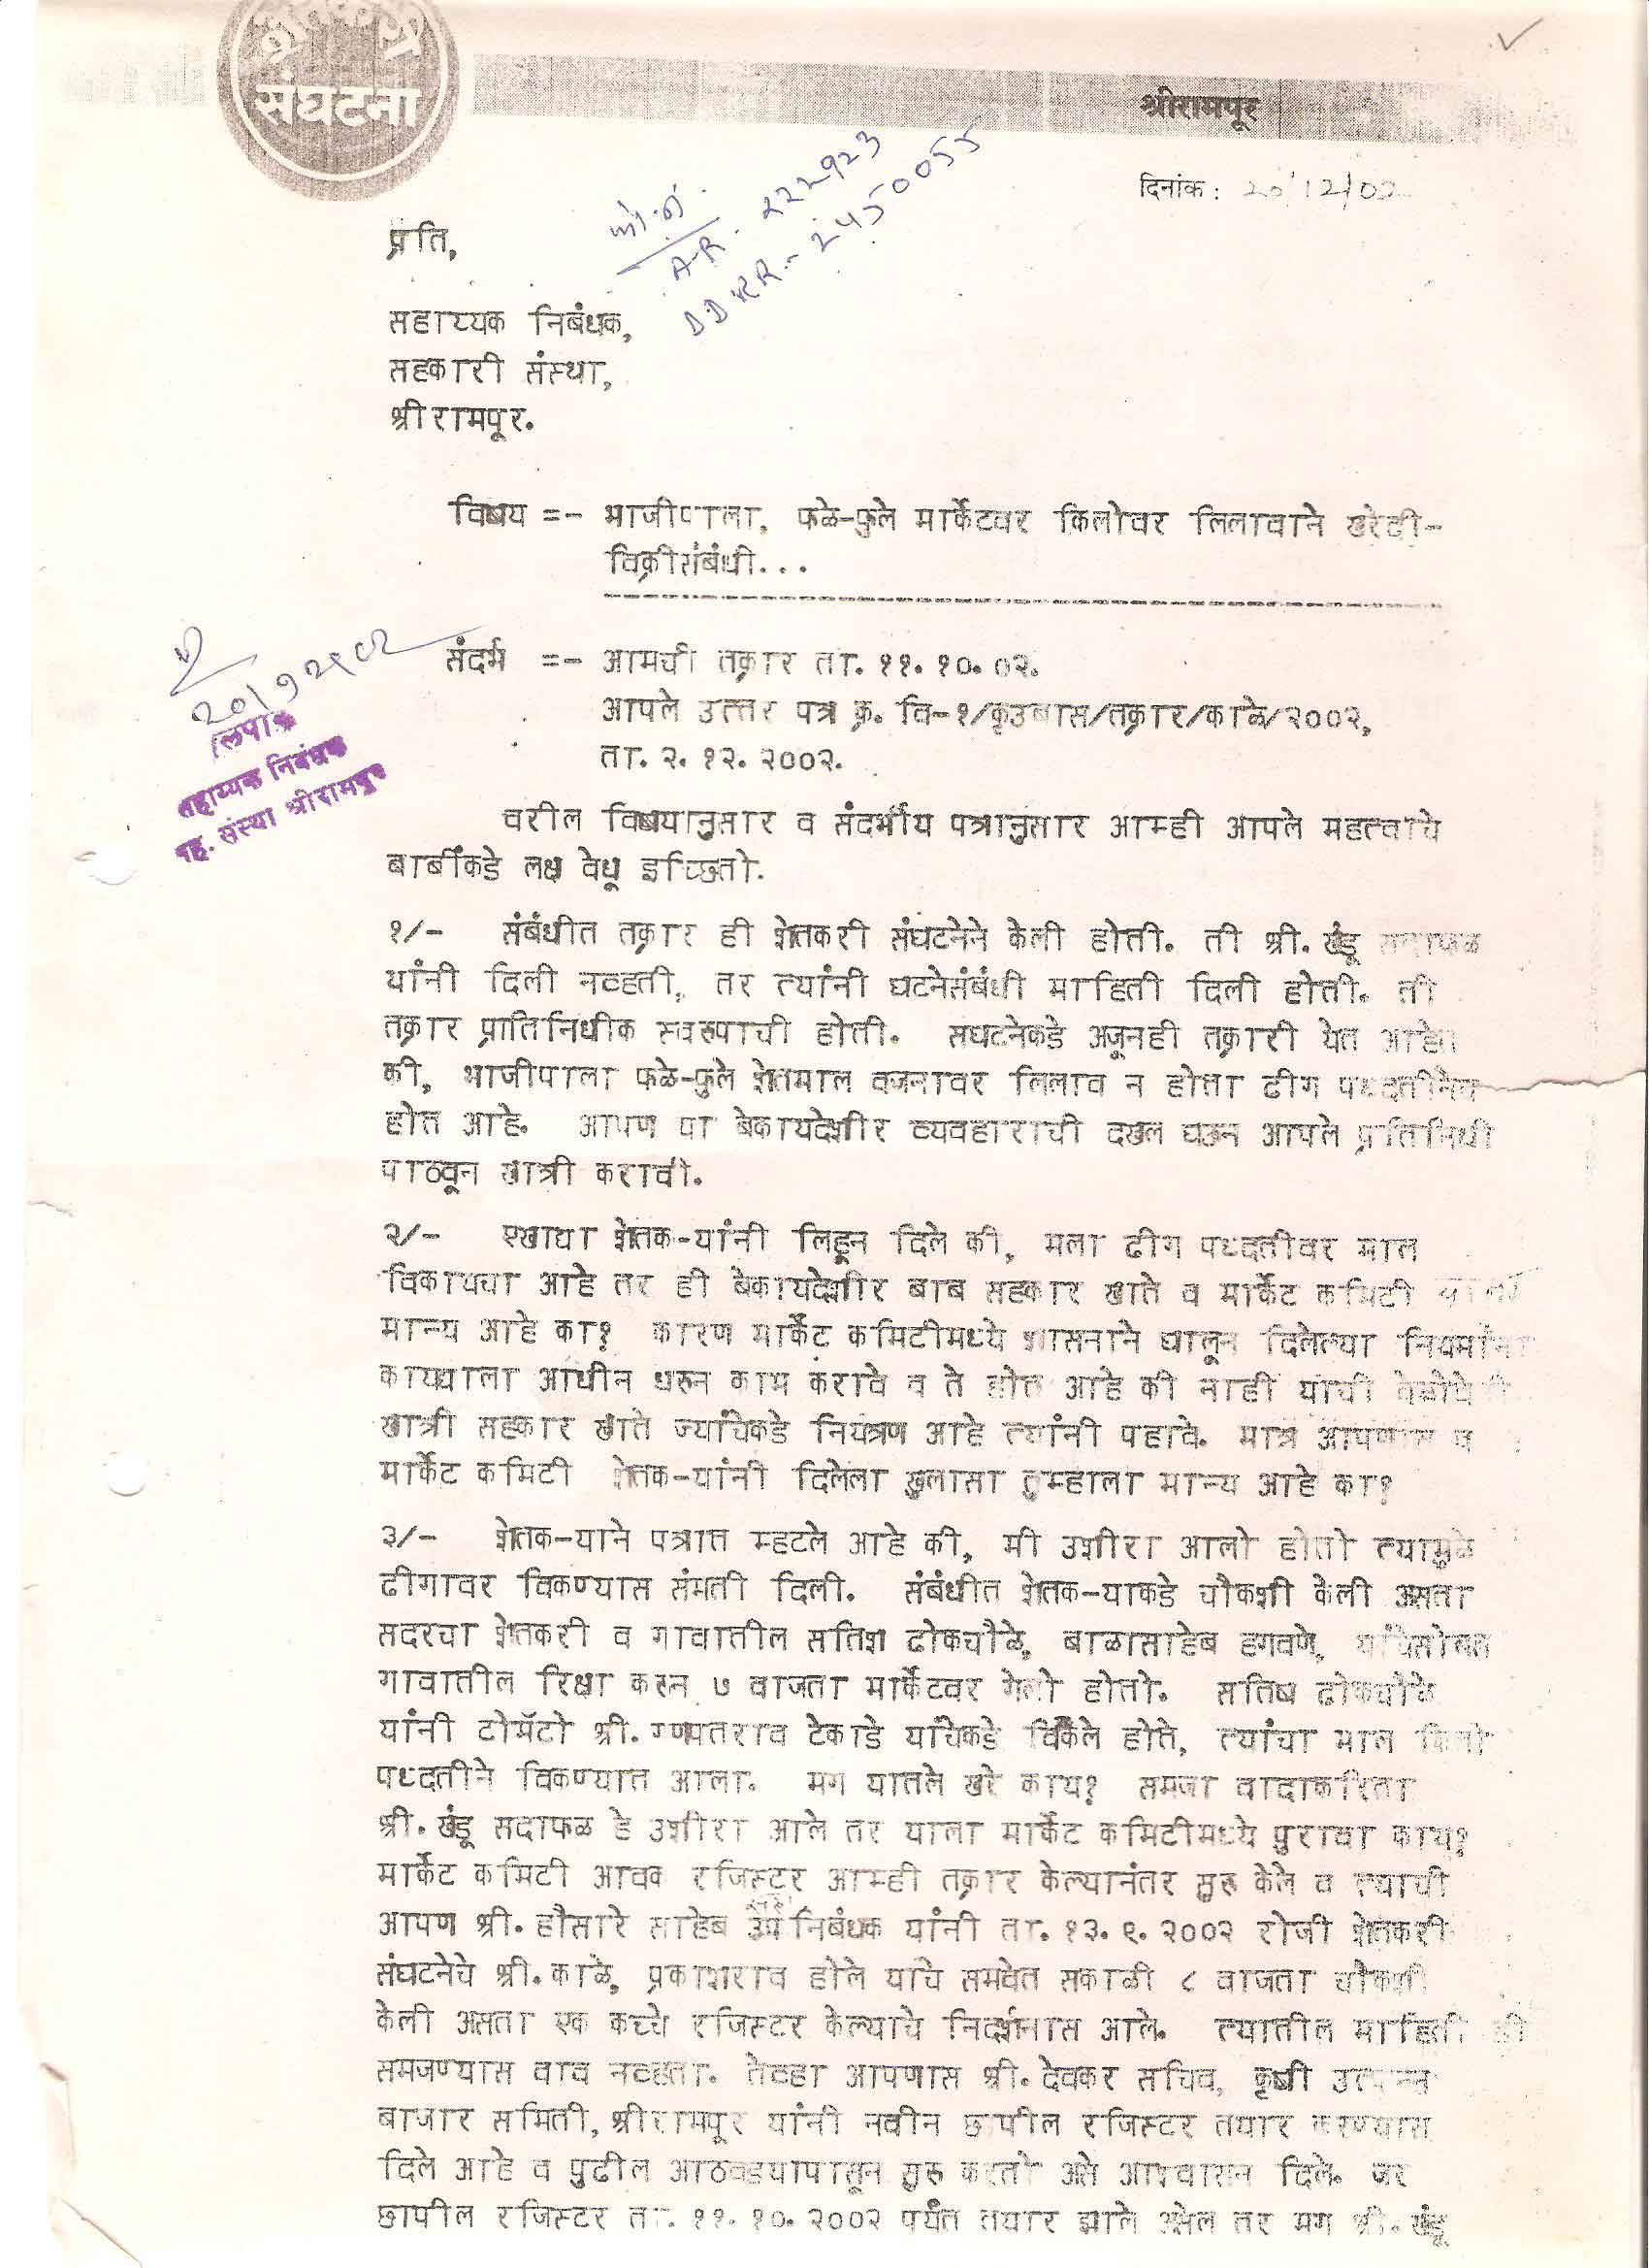 संघटना
श्रीरामपूर
दिनांक: 20/12/02
फो.नं.
A.R. 222923
D.D.R.R.- 2450055
प्रति,
सहाय्यक निबंधक,
सहकारी संस्था,
श्रीरामपूर.
विषय =- भाजीपाला, फळे-फुले मार्केटवर किलोवर लिलावाने खरेदी-
विक्रीसंबंधी...
संदर्भ =- आमची तक्रार ता. ११.१०.०२.
आपले उत्तर पत्र क्र. वि-१/कृउबास/तक्रार/काळे/२००२,
ता. २.१२.२००२.
20/12/02
लिपीक
सहाय्यक निबंधक
सह. संस्था श्रीरामपुर
वरील विषयानुसार व संदर्भीय पत्रानुसार आम्ही आपले महत्वाचे
बाबींकडे लक्ष वेधू इच्छितो.
१/- संबंधीत तक्रार ही शेतकरी संघटनेने केली होती. ती श्री. खंडू सदाफळ
यांनी दिली नव्हती, तर त्यांनी घटनेसंबंधी माहिती दिली होती. ती
तक्रार प्रातिनिधीक स्वरुपाची होती. संघटनेकडे अजूनही तक्रारी येत आहेत
की, भाजीपाला फळे-फुले शेतमाल वजनावर लिलाव न होता ढीग पध्दतीनेच
होत आहे. आपण या बेकायदेशीर व्यवहाराची दखल घेऊन आपले प्रतिनिधी
पाठवून खात्री करावी.
२/- एखाद्या शेतक-यांनी लिहून दिले की, मला ढीग पध्दतीवर माल
विकायचा आहे तर ही बेकायदेशीर बाब सहकार खाते व मार्केट कमिटी यांना
मान्य आहे का? कारण मार्केट कमिटीमध्ये शासनाने घालून दिलेल्या नियमांना
कायद्याला आधीन धरुन काम करावे व ते होत आहे की नाही याची वेळोवेळी
खात्री सहकार खाते ज्यांचेकडे नियंत्रण आहे त्यांनी पहावे. मात्र आपणास व
मार्केट कमिटी शेतक-यांनी दिलेला खुलासा तुम्हाला मान्य आहे का?
३/- शेतक-याने पत्रात म्हटले आहे की, मी उशीरा आलो होतो त्यामुळे
ढीगावर विकण्यास संमती दिली. संबंधीत शेतक-याकडे चौकशी केली असता
सदरचा शेतकरी व गावातील सतिश ढोकचौळे, बाळासाहेब हगवणे, यांचेसोबत
गावातील रिक्षा करुन ७ वाजता मार्केटवर गेलो होतो. सतिष ढोकचौळे
यांनी टोमॅटो श्री. गणपतराव टेकाडे यांचेकडे विकेले होते, त्यांचा माल किलो
पध्दतीने विकण्यात आला. मग यातले खरे काय? समजा वादाकरिता
श्री. खंडू सदाफळ हे उशीरा आले तर याला मार्केट कमिटीमध्ये पुरावा काय?
मार्केट कमिटी आवक रजिस्टर आम्ही तक्रार केल्यानंतर सुरु केले व त्याची
आपण श्री. हौसारे साहेब उप निबंधक यांनी ता. १३.९.२००२ रोजी शेतकरी
संघटनेचे श्री. काळे, प्रकाशराव होले यांचे समवेत सकाळी ८ वाजता चौकशी
केली असता एक कच्चे रजिस्टर केल्याचे निदर्शनास आले. त्यातील माहिती ही
समजण्यास वाव नव्हता. तेव्हा आपणास श्री. देवकर सचिव, कृषी उत्पन्न
बाजार समिती, श्रीरामपूर यांनी नवीन छापील रजिस्टर तयार करण्यास
दिले आहे व पुढील आठवडयापासून सुरु करतो असे आश्वासन दिले. जर
छापील रजिस्टर ता. ११.१०.२००२ पर्यंत तयार झाले असेल तर मग श्री. खंडू